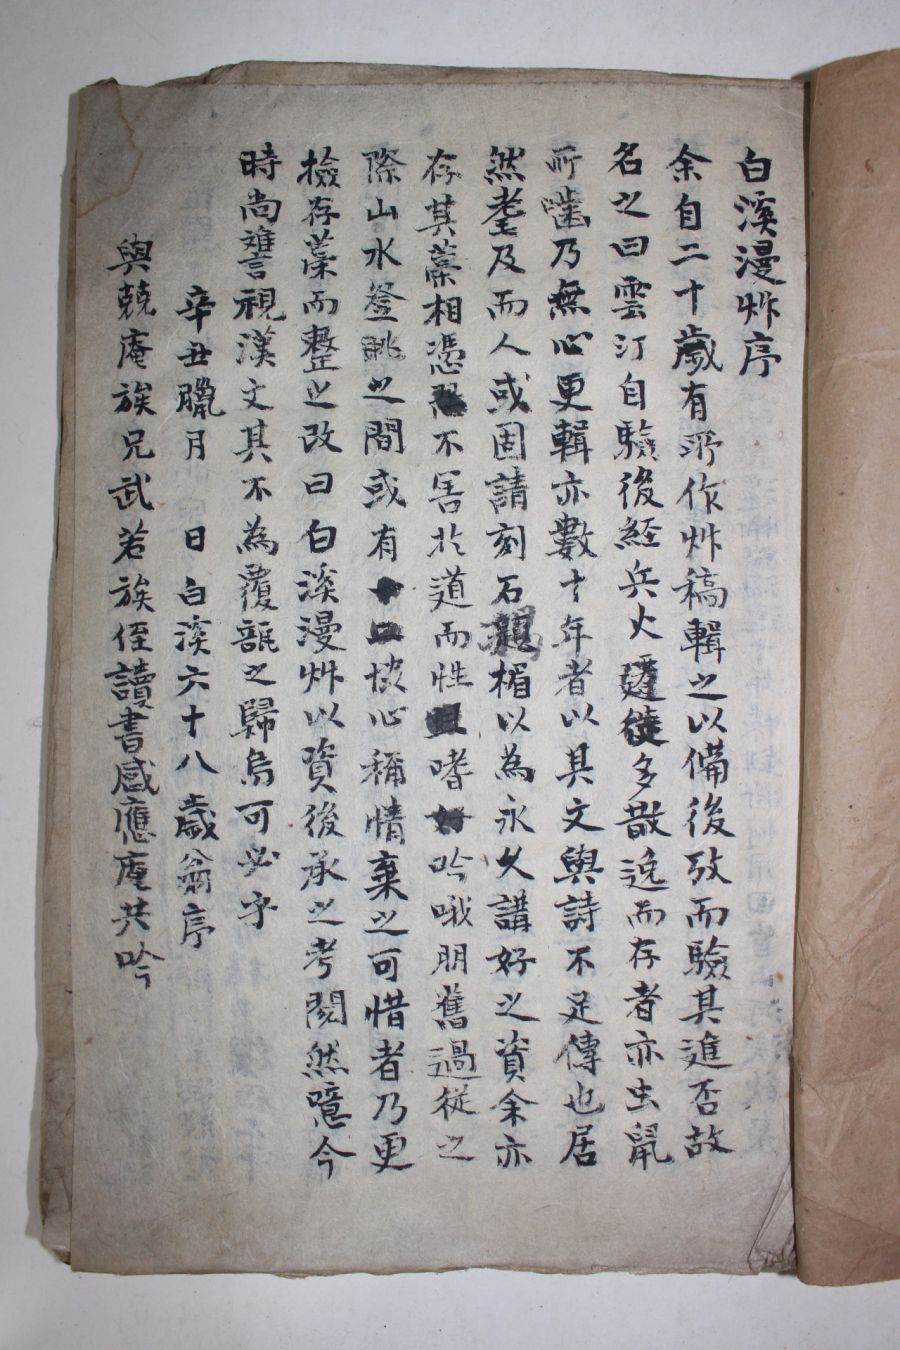 白溪漫艸序
余自二十歲有所作艸稿輯之以備後攷而驗其進否故
名之曰雲汀自驗後経兵火遷徙多散逸而存者亦虫鼠
所嚙乃無心更輯亦數十年者以其文與詩不足傳也居
然耋及而人或固請刻石楣以為永久講好之資余亦
存其藁相憑不害於道而性嗜吟哦朋舊過從之
際山水登眺之間或有恔心稱情棄之可惜者乃更
撿存藁而整之改曰白溪漫艸以資後承之考閱然噫今
時尚讆視漢文其不為覆瓿之歸烏可必乎
辛丑臘月 日白溪六十八歲翁序
與兢庵族兄武若族侄讀書感應庵共吟